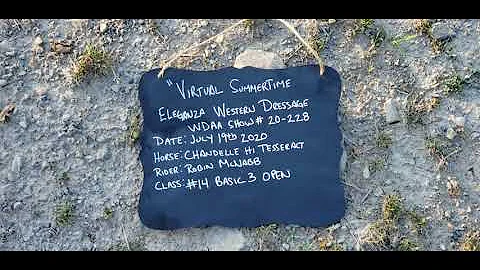 "Virtual Summertime
Eleganza Western Dressage
WDAA Show # 20-228
Date: July 19th 2020
Horse: Chandelle Hi Tesseract
Rider: Robin McNabb
Class: #14 Basic 3 Open